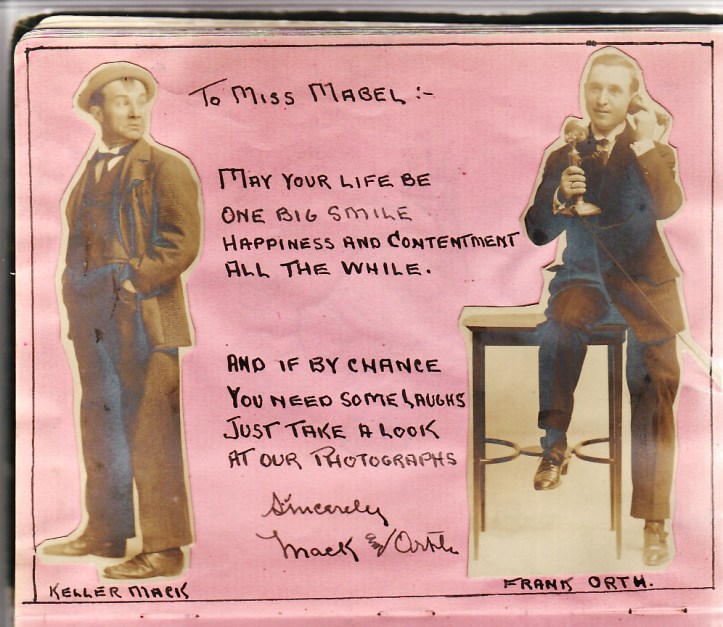 To Miss Mabel :-
May your life be
one big smile
Happiness and Contentment
all the while.
And if by chance
You need some laughs
Just take a look
at our photographs
Sincerely
Mack and Orth
Keller Mack
Frank Orth.